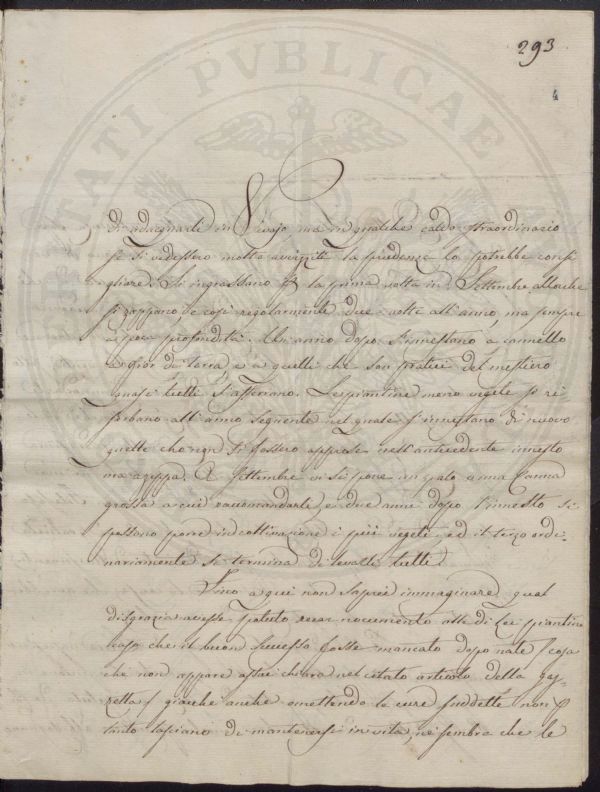 293
4
di adacquarle in Vivajo ma in qualche caldo straordinario
se si vedessero molto avvizzite la prudenza lo potrebbe consi
gliare. Si ingrassano la prima volta in Settembre allorche
si zappano, e così regolarmente due volte all'anno, ma sempre
a poca profondità. Un anno dopo s'innestano a cannello
a fior di terra, e a quelli che son pratici del mestiero
quasi tutti s'afferrano. Le piantine meno vegete si ri
serbano all'anno seguente nel quale s'innestano di nuovo
quelle che non si fossero apprese nell'antecedente innesto
ma a zeppa. A Settembre vi si pone un palo o una Canna
grossa a cui raccomandarle, e due anni dopo l'innesto si
possono porre in coltivazione i più vegeti, ed il terzo ordi:
nariamente si termina di levarli tutti.
Fino a qui non saprei immaginare qual
disgrazia avesse potuto recar nocumento alle di Lei piantine
caso che il buon successo fosse mancato dopo nate / cosa
che non appare assai chiara nel citato articolo della gaz:
zetta / giacchè anche omettendo le cure suddette non
tanto lasciano di mantenersi in vita, nè sembra che le
SVBLIMITATI PVBLICAE